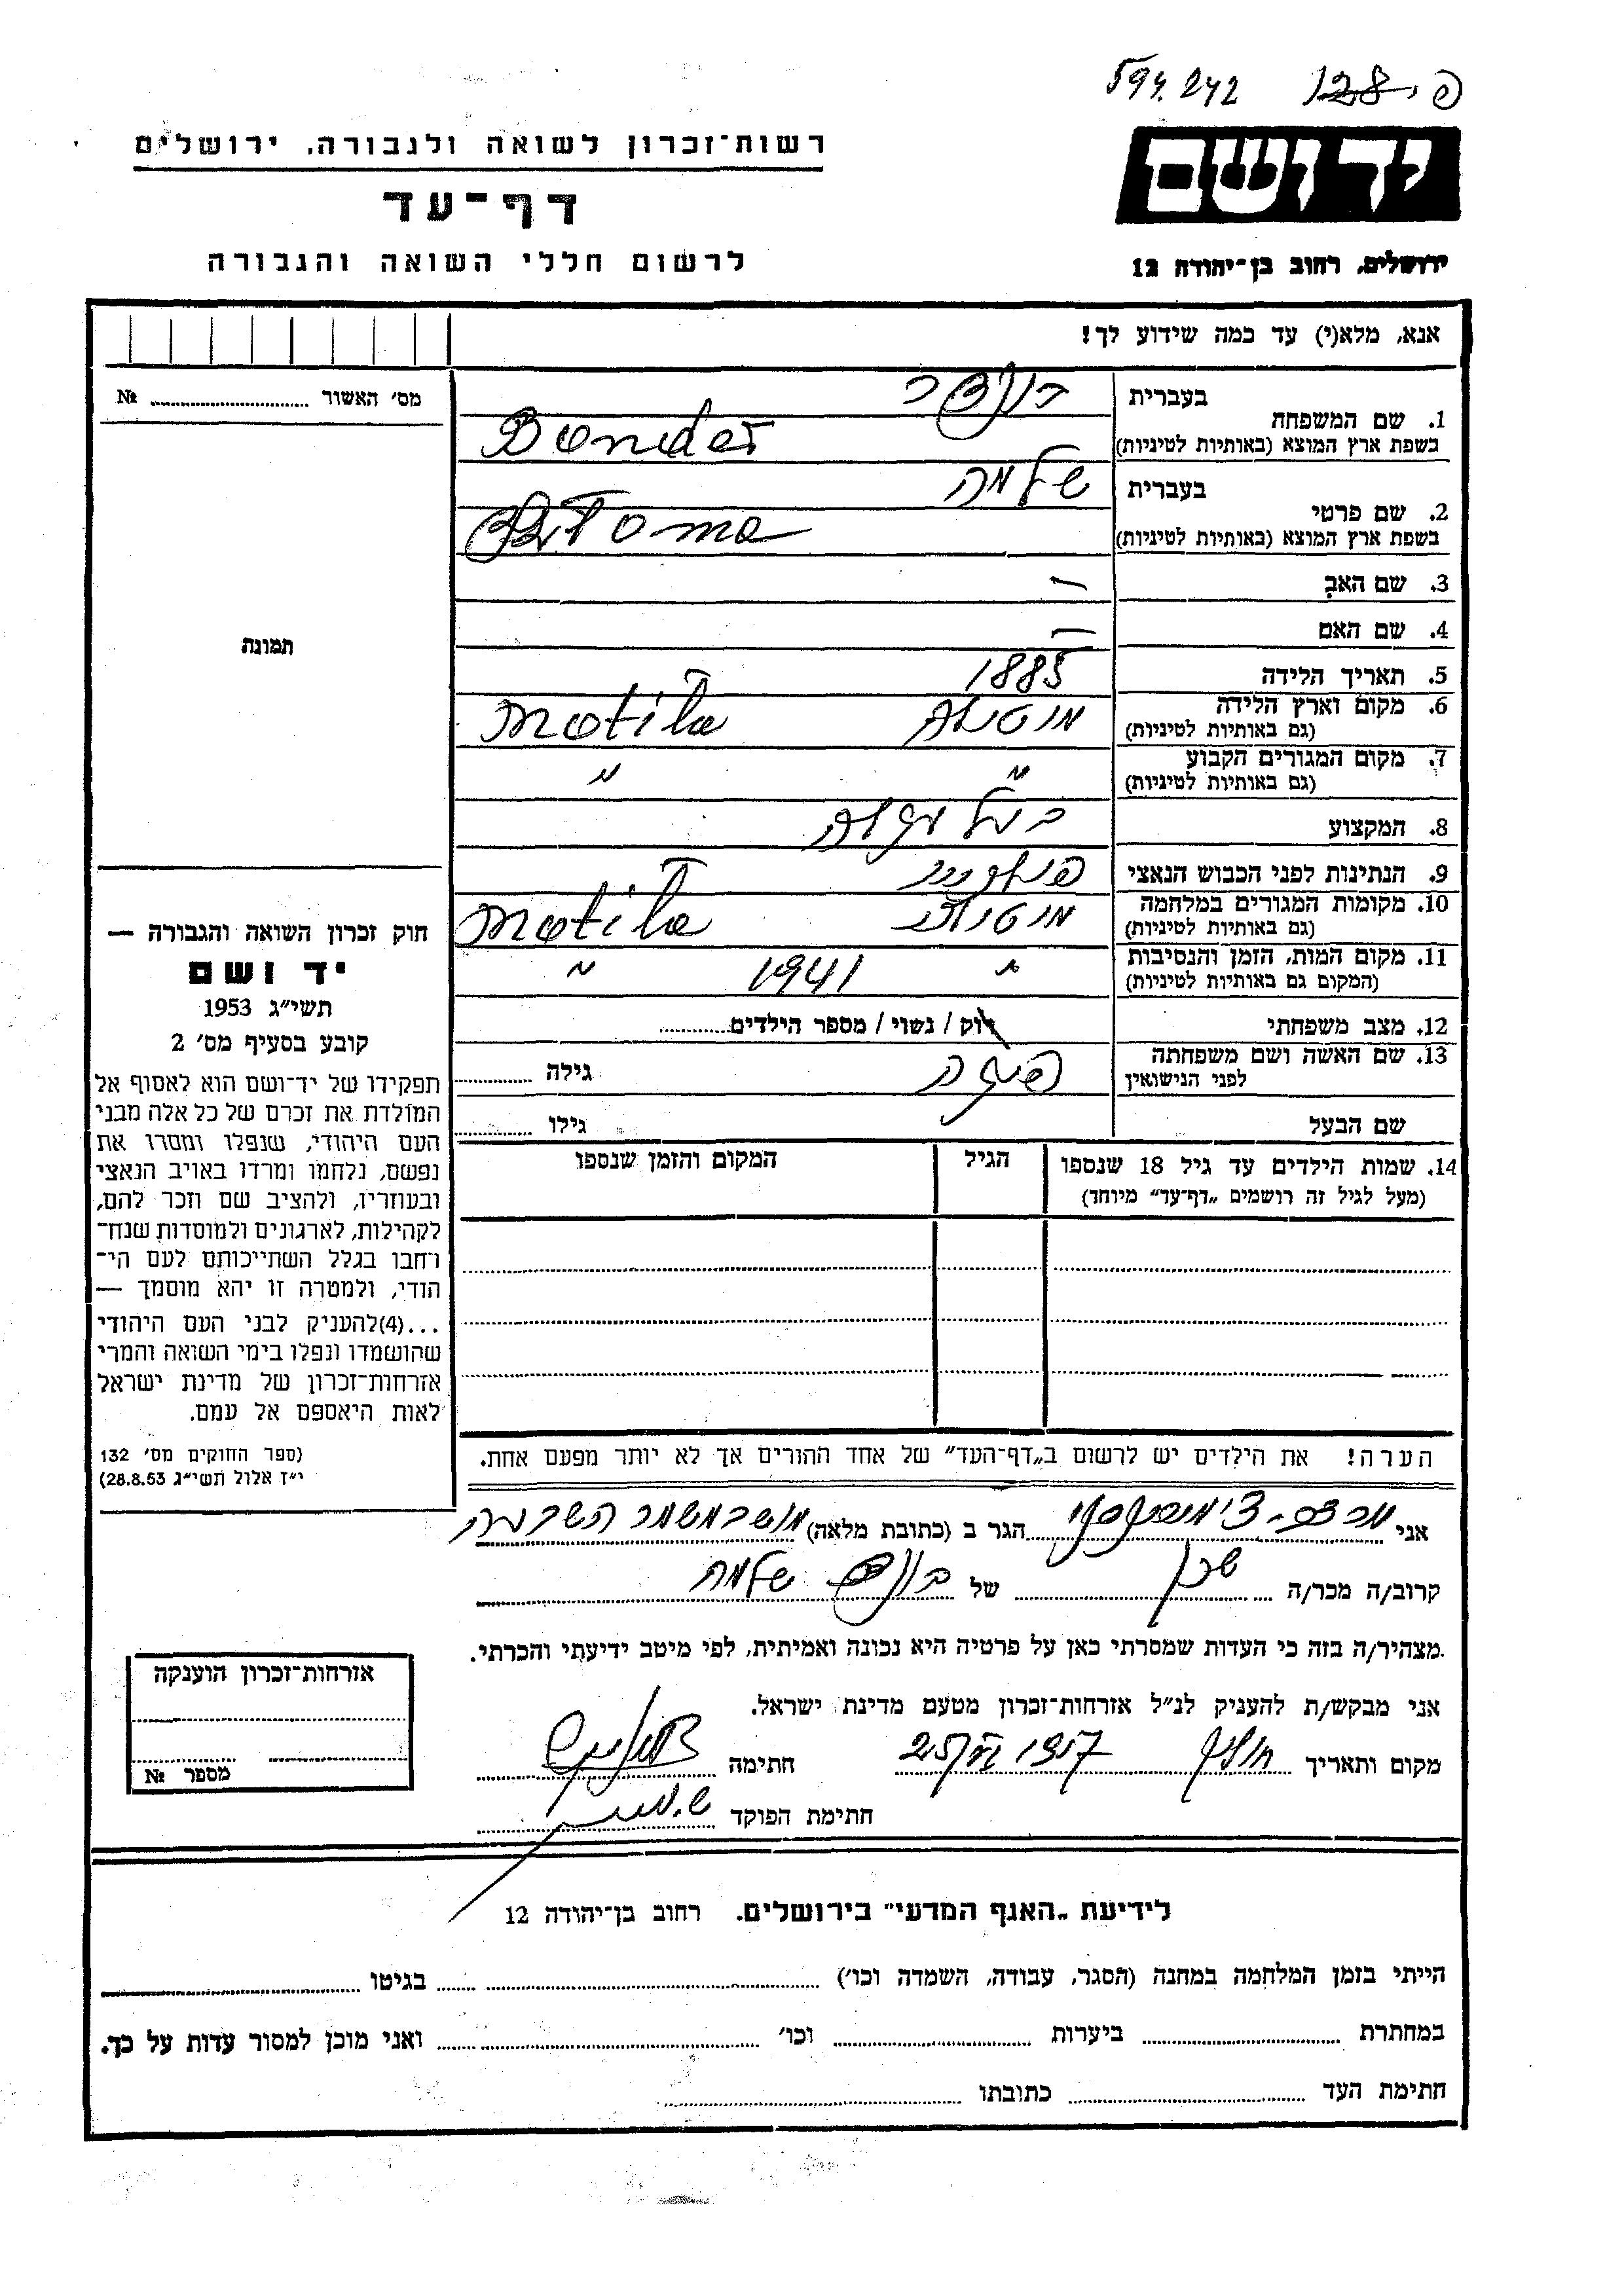 594.242 128
רשות־זכרון לשואה ולגבורה, ירושלים
יד ושם
דף־עד
לרשום חללי השואה והגבורה
ירושלים, רחוב בן־יהודה 12
אנא, מלא(י) עד כמה שידוע לך!
מס׳ האשור № ........
1. שם המשפחה
בעברית
בונדר
בשפת ארץ המוצא (באותיות לטיניות)
Bonder
2. שם פרטי
בעברית
שלמה
בשפת ארץ המוצא (באותיות לטיניות)
3. שם האב —
4. שם האם —
תמונה
5. תאריך הלידה 1885
6. מקום וארץ הלידה
(גם באותיות לטיניות)
Motila
7. מקום המגורים הקבוע
(גם באותיות לטיניות)
״ ״
8. המקצוע
9. הנתינות לפני הכבוש הנאצי
10. מקומות המגורים במלחמה
(גם באותיות לטיניות)
Motila
11. מקום המות, הזמן והנסיבות
(המקום גם באותיות לטיניות)
״ 1941 ״
12. מצב משפחתי רוק / נשוי / מספר הילדים........
13. שם האשה ושם משפחתה
לפני הנישואין
גילה ........
שם הבעל גילו ........
14. שמות הילדים עד גיל 18 שנספו
(מעל לגיל זה רושמים „דף־עד״ מיוחד)
הגיל
המקום והזמן שנספו
חוק זכרון השואה והגבורה —
יד ושם
תשי״ג 1953
קובע בסעיף מס׳ 2
תפקידו של יד־ושם הוא לאסוף אל
המולדת את זכרם של כל אלה מבני
העם היהודי, שנפלו ומסרו את
נפשם, נלחמו ומרדו באויב הנאצי
ובעוזריו, ולהציב שם וזכר להם,
לקהילות, לארגונים ולמוסדות שנח־
רחבו בגלל השתייכותם לעם הי־
הודי, ולמטרה זו יהא מוסמך —
...(4)להעניק לבני העם היהודי
שהושמדו ונפלו בימי השואה והמרי
אזרחות־זכרון של מדינת ישראל
לאות היאספם אל עמם.
(ספר החוקים מס׳ 132
י״ז אלול תשי״ג 28.8.53)
הערה! את הילדים יש לרשום ב„דף־העד״ של אחד ההורים אך לא יותר מפעם אחת.
אני הגר ב (כתובת מלאה) מושב משמר השבעה
קרוב/ה מכר/ה שכן של שלמה
מצהיר/ה בזה כי העדות שמסרתי כאן על פרטיה היא נכונה ואמיתית, לפי מיטב ידיעתי והכרתי.
אני מבקש/ת להעניק לנ״ל אזרחות־זכרון מטעם מדינת ישראל.
מקום ותאריך 1957 חתימה
חתימת הפוקד
אזרחות־זכרון הוענקה
מספר №
לידיעת „האגף המדעי״ בירושלים. רחוב בן־יהודה 12
הייתי בזמן המלחמה במחנה (הסגר, עבודה, השמדה וכו׳) ........ בגיטו ........
במחתרת ........ ביערות ........ וכו׳ ........ ואני מוכן למסור עדות על כך.
חתימת העד ........ כתובתו ........